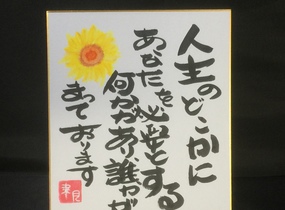 人生のどこかに
あなたを必要とする
何かがあり、誰かが
まっております